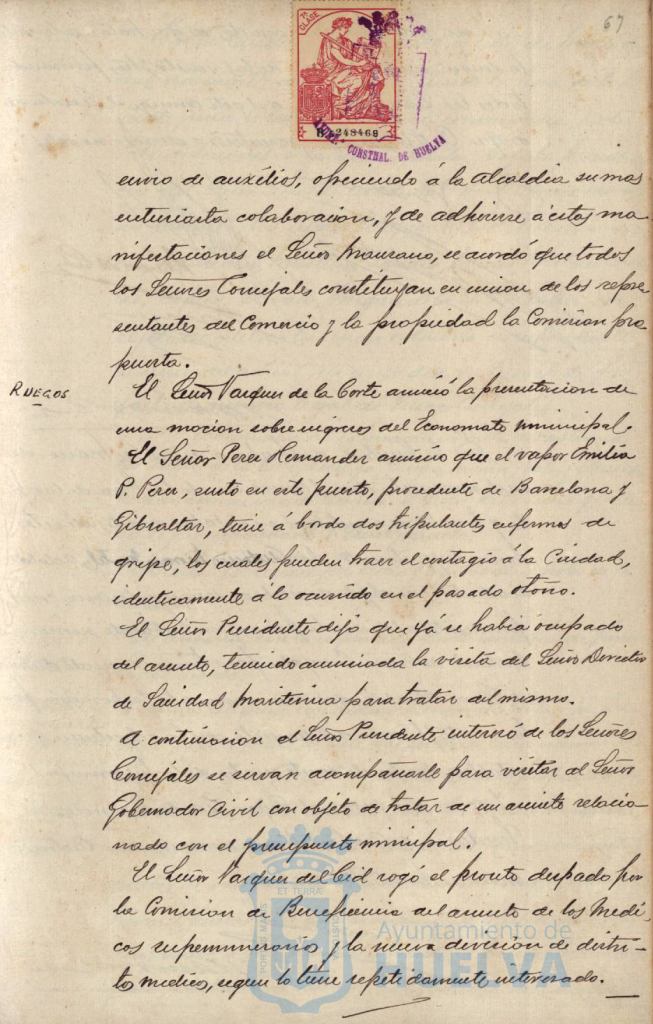 67
7ª CLASE
B 248468
AYUNT. CONSTNAL. DE HUELVA
envio de auxilios, ofreciendo á la Alcaldia su mas
entusiasta colaboracion, y de adherirse á estas ma
nifestaciones el Señor Manzano, se acordó que todos
los Señores Concejales constituyan en union de los repre
sentantes del Comercio y la propiedad la Comision pro
puesta.
RUEGOS
El Señor Vazquez de la Corte anunció la presentacion de
una mocion sobre ingresos del Economato municipal.
El Señor Perez Hernandez anuncio que el vapor Emilia
P. Perez, surto en este puerto, procedente de Barcelona y
Gibraltar, tiene á bordo dos tripulantes enfermos de
gripe, los cuales pueden traer el contagio á la Ciudad,
identicamente á lo ocurrido en el pasado otoño.
El Señor Presidente dijo que yá se habia ocupado
del asunto, teniendo anunciada la visita del Señor Director
de Sanidad Maritima para tratar del mismo.
A continuacion el Señor Presidente interesó de los Señores
Concejales se sirvan acompañarle para visitar al Señor
Gobernador Civil con objeto de tratar de un asunto relacio
nado con el presupuesto municipal.
El Señor Vazquez del Cid rogó el pronto despacho por
la Comision de Beneficencia del asunto de los Medi-
cos supernumerarios y la nueva division de distri-
tos medico, segun lo tiene repetidamente interesado.
Ayuntamiento de
HUELVA